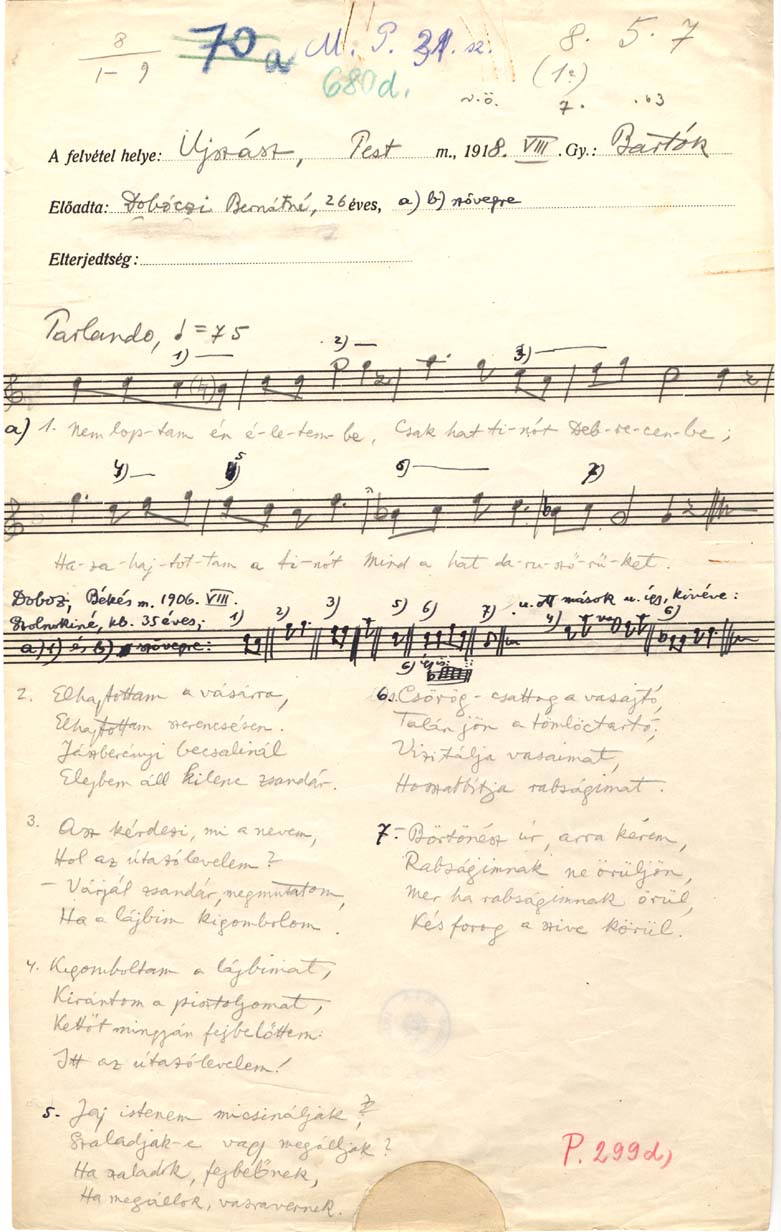 8
1- 9
70a
M. P. 31. sz.
680d.
8. 5. 7
(1e)
v.ö. 7. .63
A felvétel helye: Ujszász, Pest m., 1918. VIII. Gy.: Bartók
Előadta: Dobóczi Bernátné, 26 éves, a) b) szövegre
Elterjedtség:
Parlando, ♩ = 75
1) 2) 3)
a) 1. Nem lop-tam én é-le-tem-be, Csak hat ti-nót Deb-re-cen-be;
4) 5 6) 7)
Ha-za-haj-tot-tam a ti-nót Mind a hat da-ru-sző-rű-ket.
Doboz, Békés m. 1906. VIII.
Szolnokiné, kb. 35 éves;
a) 1) és b) szövegre: 1) 2) 3) 5) 6) 7) u. ott mások u. így, kivéve: 4) vagy 6)
2. Elhajtottam a vásárra,
Elhajtottam szerencsésen.
Jászberényi becsalinál
Elejbem áll kilenc zsandár.
3. Asz kérdezi, mi a nevem,
Hol az útazólevelem?
– Várjál zsandár, megmutatom,
Ha a lájbim kigombolom.
4. Kigomboltam a lájbimat,
Kirántom a pisztolyomat,
Kettőt mingyán fejbelőttem:
Itt az útazólevelem!
5. Jaj istenem micsináljak?
Szaladjak-e vagy megálljak?
Ha szaladok, fejbelőnek,
Ha megállok, vasravernek.
6. Csörög-csattog a vasajtó,
Talán jön a tömlöctartó,
Vizitálja vasaimat,
Hosszabbítja rabságimat.
7. – Börtönész úr, arra kérem,
Rabságimnak ne örüljön,
Mer ha rabságimnak örül,
Kés forog a szive körül.
P. 299d)